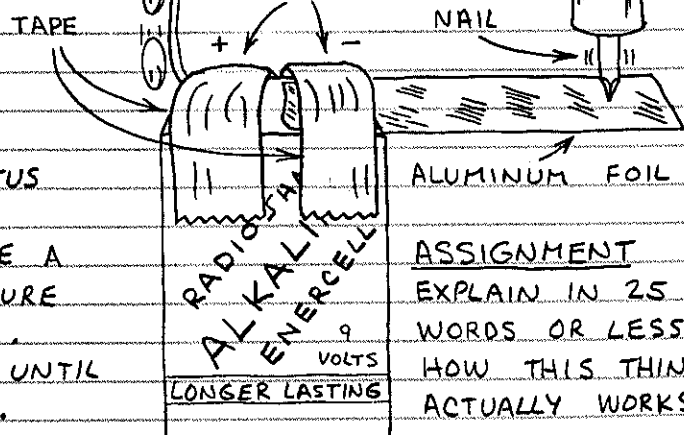 TAPE
NAIL
+
−
TUS
ALUMINUM FOIL
E A
URE
.
UNTIL
.
RADIO SHA
ALKALI
ENERCELL
9
VOLTS
LONGER LASTING
ASSIGNMENT
EXPLAIN IN 25
WORDS OR LESS
HOW THIS THIN
ACTUALLY WORKS